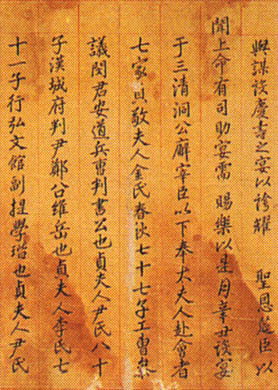 與謀設慶壽之宴以誇耀 聖恩處臣以
聞上命有司助宴需 賜樂以是月辛丑設宴
于三清洞公廨宰臣以下奉大夫人赴會者
七家貞敬夫人金氏春秋七十七子工曹參
議閔君安道兵曹判書公也貞夫人尹氏八十
子漢城府判尹鄭公維岳也貞夫人李氏七
十一子行弘文館副提學瑎也貞夫人尹氏